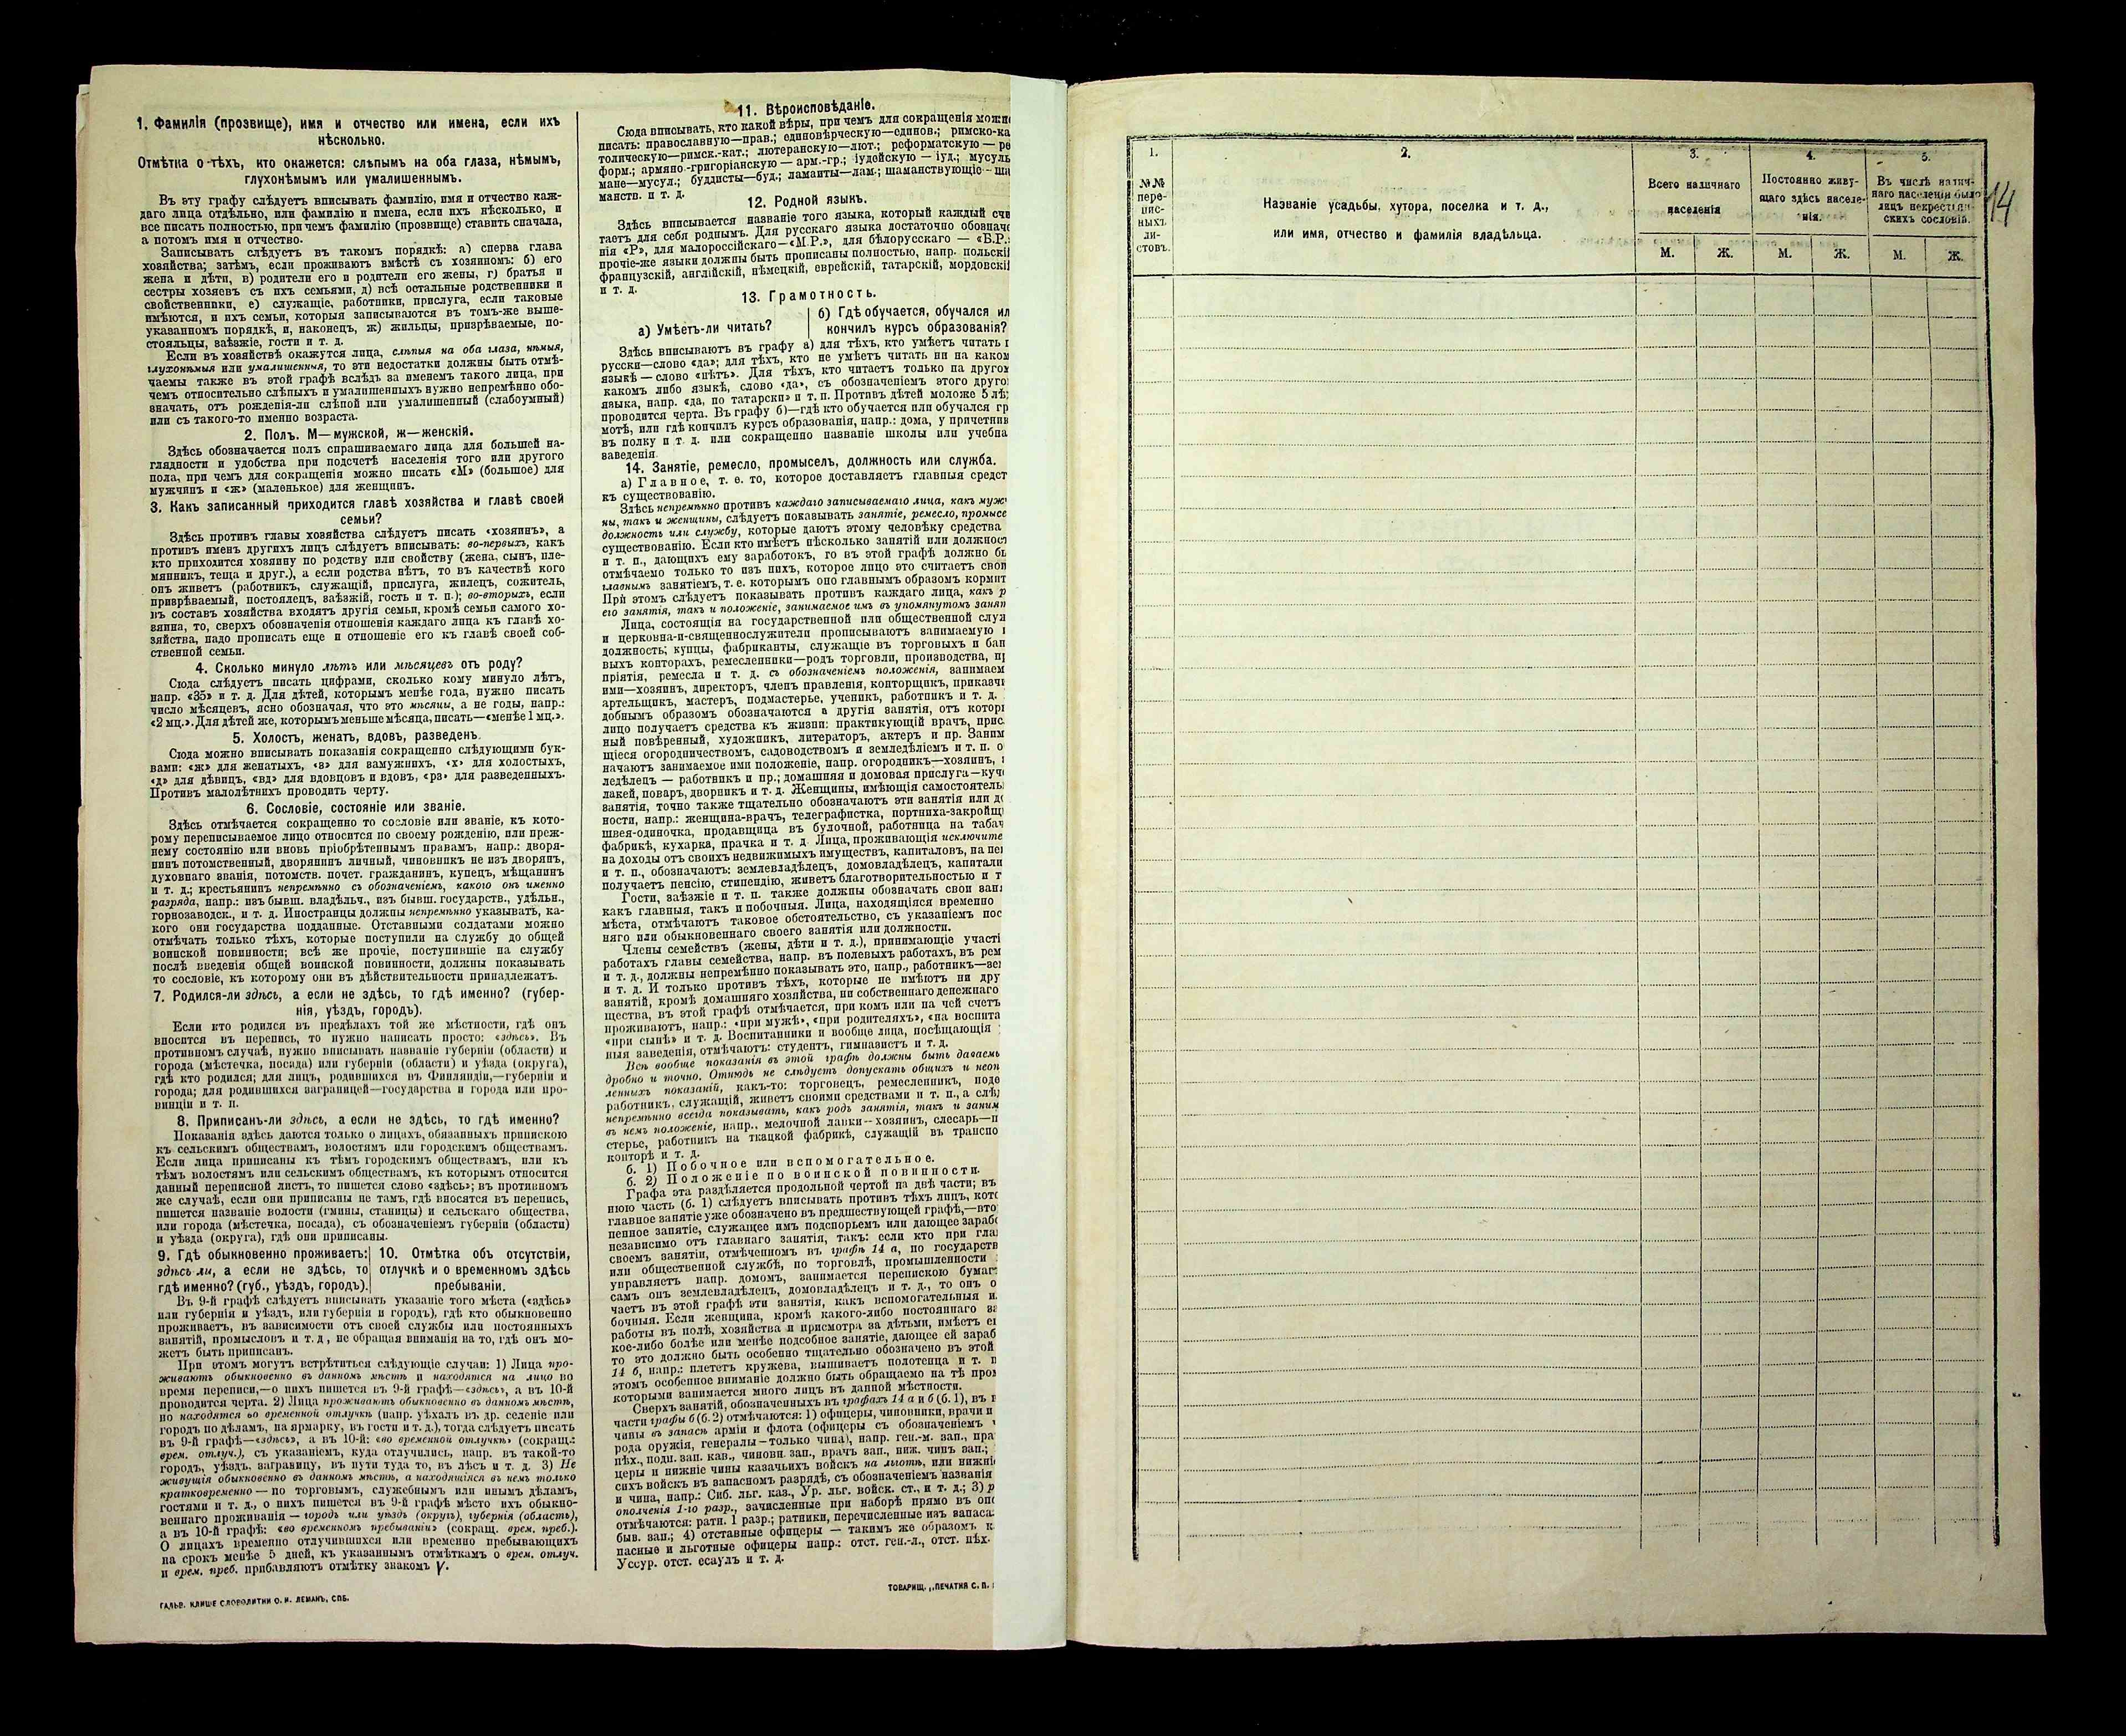 1. Фамилія (прозвище), имя и отчество или имена, если ихъ
нѣсколько.
Отмѣтка о тѣхъ, кто окажется: слѣпымъ на оба глаза, нѣмымъ,
глухонѣмымъ или умалишеннымъ.
Въ эту графу слѣдуетъ вписывать фамилію, имя и отчество каж-
даго лица отдѣльно, или фамилію и имена, если ихъ нѣсколько, и
все писать полностью, при чемъ фамилію (прозвище) ставить сначала,
а потомъ имя и отчество.
Записывать слѣдуетъ въ такомъ порядкѣ: а) сперва глава
хозяйства; затѣмъ, если проживаютъ вмѣстѣ съ хозяиномъ: б) его
жена и дѣти, в) родители его и родители его жены, г) братья и
сестры хозяевъ съ ихъ семьями, д) всѣ остальные родственники и
свойственники, е) служащіе, работники, прислуга, если таковые
имѣются, и ихъ семьи, которыя записываются въ томъ-же выше-
указанномъ порядкѣ, и, наконецъ, ж) жильцы, призрѣваемые, по-
стояльцы, заѣзжіе, гости и т. д.
Если въ хозяйствѣ окажутся лица, слѣпыя на оба глаза, нѣмыя,
глухонѣмыя или умалишенныя, то эти недостатки должны быть отмѣ-
чаемы также въ этой графѣ вслѣдъ за именемъ такого лица, при
чемъ относительно слѣпыхъ и умалишенныхъ нужно непремѣнно обо-
значать, отъ рожденія-ли слѣпой или умалишенный (слабоумный)
или съ такого-то именно возраста.
2. Полъ. М—мужской, ж—женскій.
Здѣсь обозначается полъ спрашиваемаго лица для большей на-
глядности и удобства при подсчетѣ населенія того или другого
пола, при чемъ для сокращенія можно писать «М» (большое) для
мужчинъ и «ж» (маленькое) для женщинъ.
3. Какъ записанный приходится главѣ хозяйства и главѣ своей
семьи?
Здѣсь противъ главы хозяйства слѣдуетъ писать «хозяинъ», а
противъ именъ другихъ лицъ слѣдуетъ вписывать: во-первыхъ, какъ
кто приходится хозяину по родству или свойству (жена, сынъ, пле-
мянникъ, теща и друг.), а если родства нѣтъ, то въ качествѣ кого
онъ живетъ (работникъ, служащій, прислуга, жилецъ, сожитель,
призрѣваемый, постоялецъ, заѣзжій, гость и т. п.); во-вторыхъ, если
въ составъ хозяйства входятъ другія семьи, кромѣ семьи самого хо-
зяина, то, сверхъ обозначенія отношенія каждаго лица къ главѣ хо-
зяйства, надо прописать еще и отношеніе его къ главѣ своей соб-
ственной семьи.
4. Сколько минуло лѣтъ или мѣсяцевъ отъ роду?
Сюда слѣдуетъ писать цифрами, сколько кому минуло лѣтъ,
напр. «35» и т. д. Для дѣтей, которымъ менѣе года, нужно писать
число мѣсяцевъ, ясно обозначая, что это мѣсяцы, а не годы, напр.:
«2 мц.». Для дѣтей же, которымъ меньше мѣсяца, писать—«менѣе 1 мц.».
5. Холостъ, женатъ, вдовъ, разведенъ.
Сюда можно вписывать показанія сокращенно слѣдующими бук-
вами: «ж» для женатыхъ, «з» для замужнихъ, «х» для холостыхъ,
«д» для дѣвицъ, «вд» для вдовцовъ и вдовъ, «рз» для разведенныхъ.
Противъ малолѣтнихъ проводить черту.
6. Сословіе, состояніе или званіе.
Здѣсь отмѣчается сокращенно то сословіе или званіе, къ кото-
рому переписываемое лицо относится по своему рожденію, или преж-
нему состоянію или вновь пріобрѣтеннымъ правамъ, напр.: дворя-
нинъ потомственный, дворянинъ личный, чиновникъ не изъ дворянъ,
духовнаго званія, потомств. почет. гражданинъ, купецъ, мѣщанинъ
и т. д.; крестьянинъ непремѣнно съ обозначеніемъ, какого онъ именно
разряда, напр.: изъ бывш. владѣльч., изъ бывш. государств., удѣльн.,
горнозаводск., и т. д. Иностранцы должны непремѣнно указывать, ка-
кого они государства подданные. Отставными солдатами можно
отмѣчать только тѣхъ, которые поступили на службу до общей
воинской повинности; всѣ же прочіе, поступившіе на службу
послѣ введенія общей воинской повинности, должны показывать
то сословіе, къ которому они въ дѣйствительности принадлежатъ.
7. Родился-ли здѣсь, а если не здѣсь, то гдѣ именно? (губер-
нія, уѣздъ, городъ).
Если кто родился въ предѣлахъ той же мѣстности, гдѣ онъ
вносится въ перепись, то нужно написать просто: «здѣсь». Въ
противномъ случаѣ, нужно вписывать названіе губерніи (области) и
города (мѣстечка, посада) или губерніи (области) и уѣзда (округа),
гдѣ кто родился; для лицъ, родившихся въ Финляндіи,—губерніи и
города; для родившихся заграницей—государства и города или про-
винціи и т. п.
8. Приписанъ-ли здѣсь, а если не здѣсь, то гдѣ именно?
Показанія здѣсь даются только о лицахъ, обязанныхъ припискою
къ сельскимъ обществамъ, волостямъ или городскимъ обществамъ.
Если лица приписаны къ тѣмъ городскимъ обществамъ, или къ
тѣмъ волостямъ или сельскимъ обществамъ, къ которымъ относится
данный переписной листъ, то пишется слово «здѣсь»; въ противномъ
же случаѣ, если они приписаны не тамъ, гдѣ вносятся въ перепись,
пишется названіе волости (гмины, станицы) и сельскаго общества,
или города (мѣстечка, посада), съ обозначеніемъ губерніи (области)
и уѣзда (округа), гдѣ они приписаны.
9. Гдѣ обыкновенно проживаетъ:
здѣсь ли, а если не здѣсь, то
гдѣ именно? (губ., уѣздъ, городъ).
10. Отмѣтка объ отсутствіи,
отлучкѣ и о временномъ здѣсь
пребываніи.
Въ 9-й графѣ слѣдуетъ вписывать указаніе того мѣста («здѣсь»
или губернія и уѣздъ, или губернія и городъ), гдѣ кто обыкновенно
проживаетъ, въ зависимости отъ своей службы или постоянныхъ
занятій, промысловъ и т. д, не обращая вниманія на то, гдѣ онъ мо-
жетъ быть приписанъ.
При этомъ могутъ встрѣтиться слѣдующіе случаи: 1) Лица про-
живаютъ обыкновенно въ данномъ мѣстѣ и находятся на лицо во
время переписи,—о нихъ пишется въ 9-й графѣ—«здѣсь», а въ 10-й
проводится черта. 2) Лица проживаютъ обыкновенно въ данномъ мѣстѣ,
но находятся во временной отлучкѣ (напр. уѣхалъ въ др. селеніе или
городъ по дѣламъ, на ярмарку, въ гости и т. д.), тогда слѣдуетъ писать
въ 9-й графѣ—«здѣсь», а въ 10-й: «во временной отлучкѣ» (сокращ.:
врем. отлуч.), съ указаніемъ, куда отлучились, напр. въ такой-то
городъ, уѣздъ, заграницу, въ пути туда то, въ лѣсъ и т. д. 3) Не
живущія обыкновенно въ данномъ мѣстѣ, а находящіяся въ немъ только
кратковременно — по торговымъ, служебнымъ или инымъ дѣламъ,
гостями и т. д., о нихъ пишется въ 9-й графѣ мѣсто ихъ обыкно-
веннаго проживанія — городъ или уѣздъ (округъ), губернія (область),
а въ 10-й графѣ: «во временномъ пребываніи» (сокращ. врем. преб.).
О лицахъ временно отлучившихся или временно пребывающихъ
на срокъ менѣе 5 дней, къ указаннымъ отмѣткамъ о врем. отлуч.
и врем. преб. прибавляютъ отмѣтку знакомъ V.
ГАЛЬВ. КЛИШЕ СЛОВОЛИТНИ О. И. ЛЕМАНЪ, СПБ.
11. Вѣроисповѣданіе.
Сюда вписывать, кто какой вѣры, при чемъ для сокращенія можн
писать: православную—прав.; единовѣрческую—единов.; римско-ка
толическую—римск.-кат.; лютеранскую—лют.; реформатскую — ре
форм.; армяно-григоріанскую — арм.-гр.; іудейскую — іуд.; мусуль
мане—мусул.; буддисты—буд.; ламаиты—лам.; шаманствующіе—ша
манств. и т. д.
12. Родной языкъ.
Здѣсь вписывается названіе того языка, который каждый счи
таетъ для себя роднымъ. Для русскаго языка достаточно обозначе
нія «Р», для малороссійскаго—«М.Р.», для бѣлорусскаго — «Б.Р.
прочіе-же языки должны быть прописаны полностью, напр. польскі
французскій, англійскій, нѣмецкій, еврейскій, татарскій, мордовскі
и т. д.
13. Грамотность.
а) Умѣетъ-ли читать?
б) Гдѣ обучается, обучался ил
кончилъ курсъ образованія?
Здѣсь вписываютъ въ графу а) для тѣхъ, кто умѣетъ читать п
русски—слово «да»; для тѣхъ, кто не умѣетъ читать ни на каком
языкѣ — слово «нѣтъ». Для тѣхъ, кто читаетъ только на другом
какомъ либо языкѣ, слово «да», съ обозначеніемъ этого друго
языка, напр. «да, по татарски» и т. п. Противъ дѣтей моложе 5 лѣ
проводится черта. Въ графу б)—гдѣ кто обучается или обучался гр
мотѣ, или гдѣ кончилъ курсъ образованія, напр.: дома, у причетник
въ полку и т. д. или сокращенно названіе школы или учебна
заведенія.
14. Занятіе, ремесло, промыселъ, должность или служба.
а) Главное, т. е. то, которое доставляетъ главныя средст
къ существованію.
Здѣсь непремѣнно противъ каждаго записываемаго лица, какъ муж
ны, такъ и женщины, слѣдуетъ показывать занятіе, ремесло, промысе
должность или службу, которые даютъ этому человѣку средства
существованію. Если кто имѣетъ нѣсколько занятій или должност
и т. п., дающихъ ему заработокъ, го въ этой графѣ должно бы
отмѣчаемо только то изъ нихъ, которое лицо это считаетъ свои
главнымъ занятіемъ, т. е. которымъ оно главнымъ образомъ кормит
При этомъ слѣдуетъ показывать противъ каждаго лица, какъ р
его занятія, такъ и положеніе, занимаемое имъ въ упомянутомъ занят
Лица, состоящія на государственной или общественной служ
и церковна-и-священнослужители прописываютъ занимаемую и
должность; купцы, фабриканты, служащіе въ торговыхъ и бан
выхъ конторахъ, ремесленники—родъ торговли, производства, пр
пріятія, ремесла и т. д. съ обозначеніемъ положенія, занимаем
ими—хозяинъ, директоръ, членъ правленія, конторщикъ, приказчи
артельщикъ, мастеръ, подмастерье, ученикъ, работникъ и т. д.
добнымъ образомъ обозначаются а другія занятія, отъ котор
лицо получаетъ средства къ жизни: практикующій врачъ, прис
ный повѣренный, художникъ, литераторъ, актеръ и пр. Заним
щіеся огородничествомъ, садоводствомъ и земледѣліемъ и т. п. о
начаютъ занимаемое ими положеніе, напр. огородникъ—хозяинъ,
ледѣлецъ — работникъ и пр.; домашняя и домовая прислуга—куч
лакей, поваръ, дворникъ и т. д. Женщины, имѣющія самостоятель
занятія, точно также тщательно обозначаютъ эти занятія или д
ности, напр.: женщина-врачъ, телеграфистка, портниха-закройщ
швея-одиночка, продавщица въ булочной, работница на табач
фабрикѣ, кухарка, прачка и т. д. Лица, проживающія исключите
на доходы отъ своихъ недвижимыхъ имуществъ, капиталовъ, на пе
и т. п., обозначаютъ: землевладѣлецъ, домовладѣлецъ, капитали
получаетъ пенсію, стипендію, живетъ благотворительностью и т
Гости, заѣзжіе и т. п. также должны обозначать свои заня
какъ главныя, такъ и побочныя. Лица, находящіяся временно
мѣста, отмѣчаютъ таковое обстоятельство, съ указаніемъ пос
няго или обыкновеннаго своего занятія или должности.
Члены семействъ (жены, дѣти и т. д.), принимающіе участі
работахъ главы семейства, напр. въ полевыхъ работахъ, въ рем
и т. д., должны непремѣнно показывать это, напр., работникъ—зе
и т. д. И только противъ тѣхъ, которые не имѣютъ ни дру
занятій, кромѣ домашняго хозяйства, ни собственнаго денежнаго
щества, въ этой графѣ отмѣчается, при комъ или на чей счетъ
проживаютъ, напр.: «при мужѣ», «при родителяхъ», «на воспита
«при сынѣ» и т. д. Воспитанники и вообще лица, посѣщающія
ныя заведенія, отмѣчаютъ: студентъ, гимназистъ и т. д.
Всѣ вообще показанія въ этой графѣ должны быть даваемы
дробно и точно. Отнюдь не слѣдуетъ допускать общихъ и неоп
ленныхъ показаній, какъ-то: торговецъ, ремесленникъ, поде
работникъ, служащій, живетъ своими средствами и т. п., а слѣ
непремѣнно всегда показывать, какъ родъ занятія, такъ и заним
въ немъ положеніе, напр., мелочной лавки—хозяинъ, слесарь—п
стерье, работникъ на ткацкой фабрикѣ, служащій въ транспо
конторѣ и т. д.
б. 1) Побочное или вспомогательное.
б. 2) Положеніе по воинской повинности.
Графа эта раздѣляется продольной чертой на двѣ части; въ
нюю часть (б. 1) слѣдуетъ вписывать противъ тѣхъ лицъ, кото
главное занятіе уже обозначено въ предшествующей графѣ,—вто
пенное занятіе, служащее имъ подспорьемъ или дающее зарабо
независимо отъ главнаго занятія, такъ: если кто при гла
своемъ занятіи, отмѣченномъ въ графѣ 14 а, по государств
или общественной службѣ, по торговлѣ, промышленности
управляетъ напр. домомъ, занимается перепискою бумаг
самъ онъ землевладѣлецъ, домовладѣлецъ и т. д., то онъ о
чаетъ въ этой графѣ эти занятія, какъ вспомогательныя и
бочныя. Если женщина, кромѣ какого-либо постояннаго за
работы въ полѣ, хозяйства и присмотра за дѣтьми, имѣетъ е
кое-либо болѣе или менѣе подсобное занятіе, дающее ей зараб
то это должно быть особенно тщательно обозначено въ этой
14 б, напр.: плететъ кружева, вышиваетъ полотенца и т. п
этомъ особенное вниманіе должно быть обращаемо на тѣ пром
которыми занимается много лицъ въ данной мѣстности.
Сверхъ занятій, обозначенныхъ въ графахъ 14 а и б (б. 1), въ н
части графы б (б. 2) отмѣчаются: 1) офицеры, чиновники, врачи и
чины въ запасѣ арміи и флота (офицеры съ обозначеніемъ ч
рода оружія, генералы—только чина), напр. ген.-м. зап., пра
пѣх., подп. зап. кав., чиновн. зап., врачъ зап., ниж. чинъ зап.;
церы и нижніе чины казачьихъ войскъ на льготѣ, или нижні
сихъ войскъ въ запасномъ разрядѣ, съ обозначеніемъ названія
и чина, напр.: Сиб. льг. каз., Ур. льг. войск. ст., и т. д.; 3) р
ополченія 1-го разр., зачисленные при наборѣ прямо въ опо
отмѣчаются: ратн. 1 разр.; ратники, перечисленные изъ запаса
быв. зап.; 4) отставные офицеры — такимъ же образомъ к
пасные и льготные офицеры напр.: отст. ген.-л., отст. пѣх.
Уссур. отст. есаулъ и т. д.
ТОВАРИЩ. „ПЕЧАТНЯ С. П.
1.
№№
пере-
пис-
ныхъ
ли-
стовъ.
2.
Названіе усадьбы, хутора, поселка и т. д.,
или имя, отчество и фамилія владѣльца.
3.
Всего наличнаго
населенія
М. Ж.
4.
Постоянно живу-
щаго здѣсь населе-
нія.
М. Ж.
5.
Въ числѣ налич-
наго населенія было
лицъ некрестьян-
скихъ сословій.
М. Ж.
14